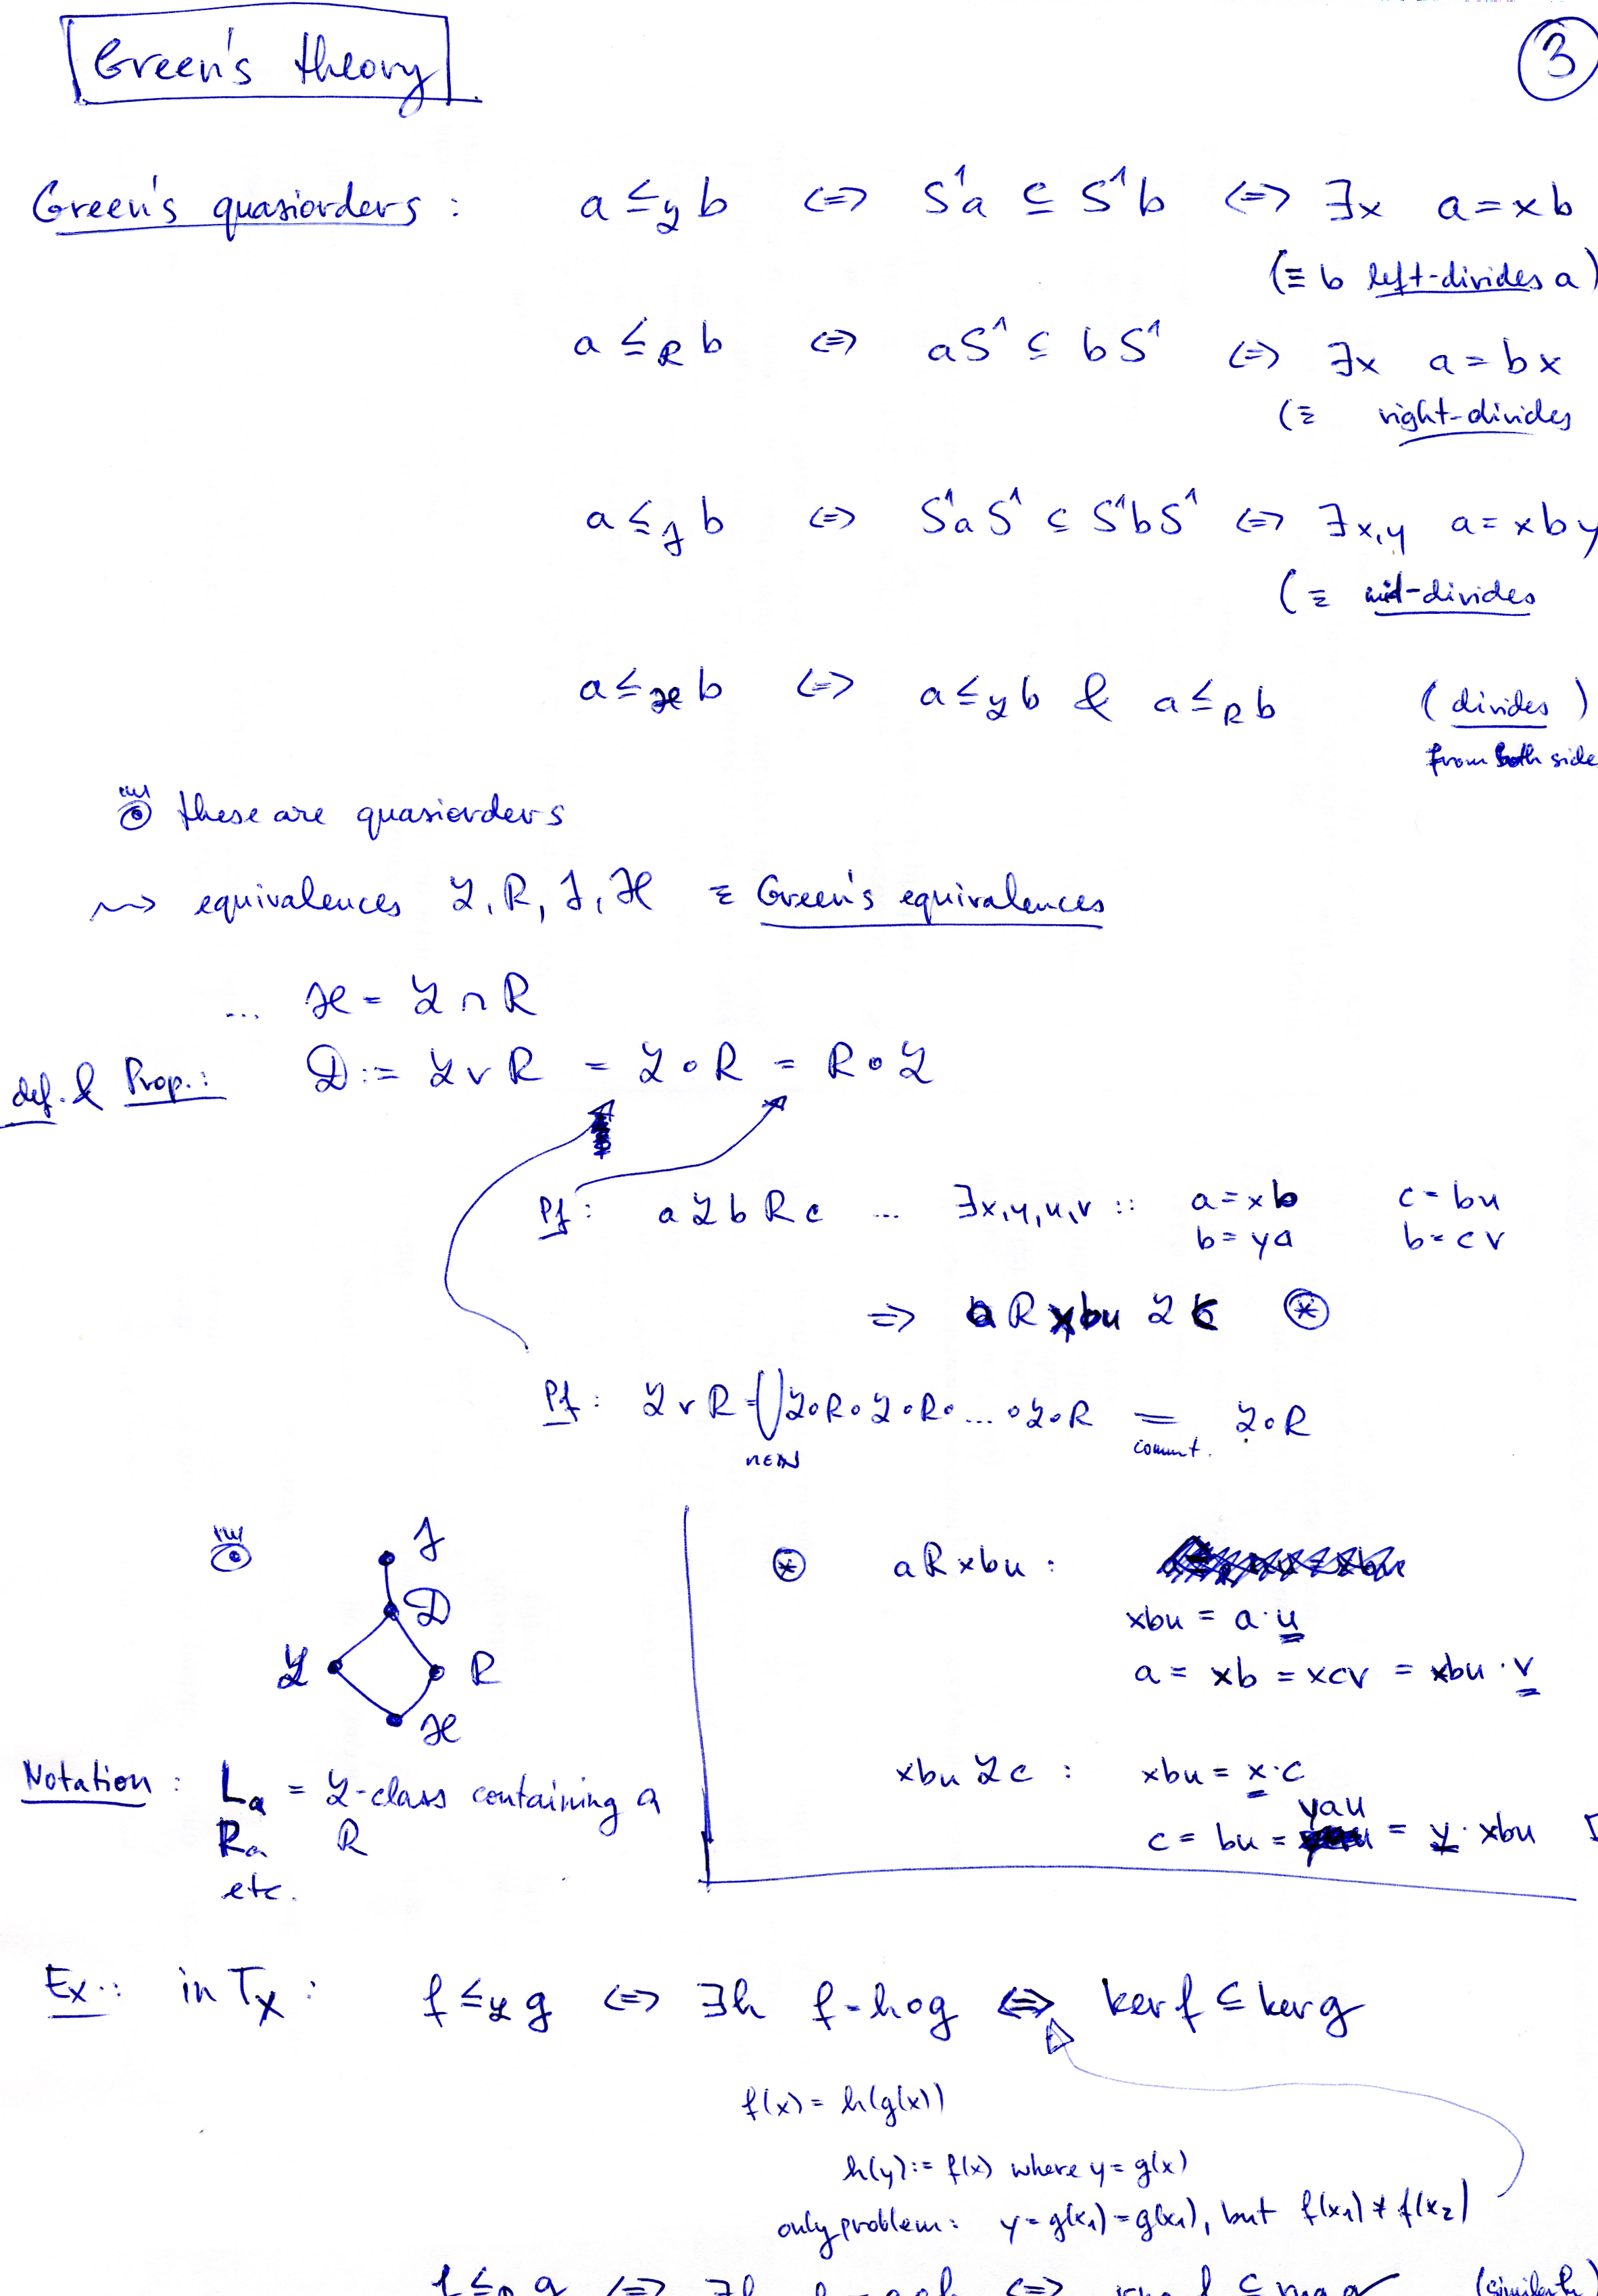 Green's theory
3
Green's quasiorders : a ≤_ℒ b ⇔ S¹a ⊆ S¹b ⇔ ∃x a = xb
(≡ b left-divides a)
a ≤_R b ⇔ aS¹ ⊆ bS¹ ⇔ ∃x a = bx
(≡ right-divides
a ≤_J b ⇔ S¹aS¹ ⊆ S¹bS¹ ⇔ ∃x,y a = xby
(≡ mid-divides
a ≤_ℋ b ⇔ a ≤_ℒ b & a ≤_R b (divides)
from both side
these are quasiorders
⇝ equivalences ℒ, R, J, ℋ ≡ Green's equivalences
... ℋ = ℒ ∩ R
def. & Prop.: 𝒟 := ℒ ∨ R = ℒ ∘ R = R ∘ ℒ
Pf: a ℒ b R c ... ∃x,y,u,v :: a = xb c = bu
b = ya b = cv
⇒ a R xbu ℒ c ⊛
Pf: ℒ ∨ R = ⋃ ℒ∘R∘ℒ∘R∘...∘ℒ∘R = ℒ∘R
n∈ℕ commut.
J
𝒟
ℒ R
ℋ
⊛ a R xbu :
xbu = a·u
a = xb = xcv = xbu·v
xbu ℒ c : xbu = x·c
c = bu = yau = y·xbu
Notation : L_a = ℒ-class containing a
R_a R
etc.
Ex.: in T_X : f ≤_ℒ g ⇔ ∃h f = h∘g ⇔ ker f ⊆ ker g
f(x) = h(g(x))
h(y) := f(x) where y = g(x)
only problem: y = g(x₁) = g(x₁), but f(x₁) ≠ f(x₂)